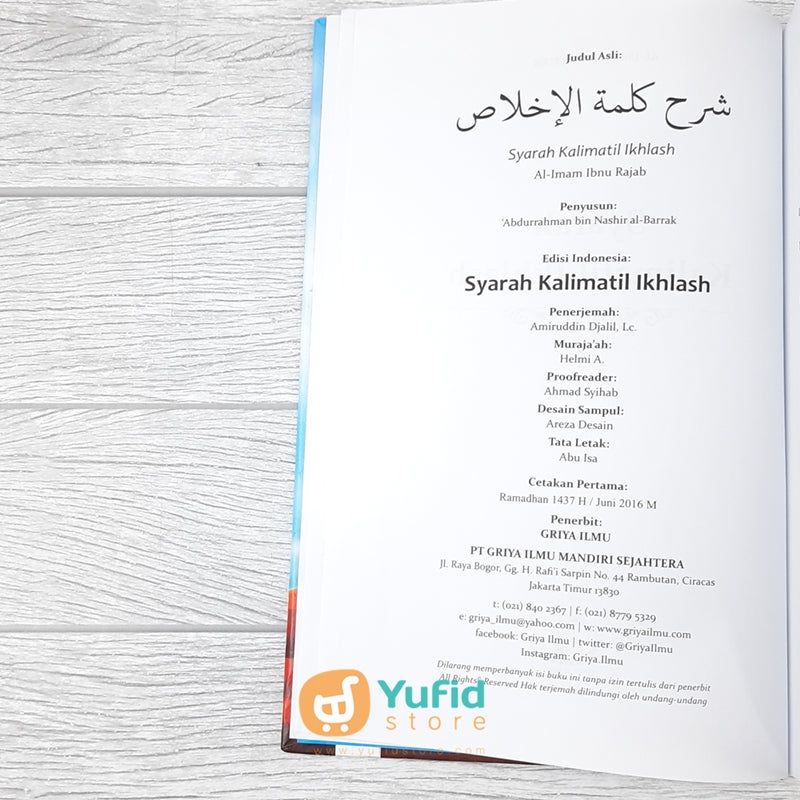 Judul Asli:
شرح كلمة الإخلاص
Syarah Kalimatil Ikhlash
Al-Imam Ibnu Rajab
Penyusun:
'Abdurrahman bin Nashir al-Barrak
Edisi Indonesia:
Syarah Kalimatil Ikhlash
Penerjemah:
Amiruddin Djalil, Lc.
Muraja'ah:
Helmi A.
Proofreader:
Ahmad Syihab
Desain Sampul:
Areza Desain
Tata Letak:
Abu Isa
Cetakan Pertama:
Ramadhan 1437 H / Juni 2016 M
Penerbit:
GRIYA ILMU
PT GRIYA ILMU MANDIRI SEJAHTERA
Jl. Raya Bogor, Gg. H. Rafi'i Sarpin No. 44 Rambutan, Ciracas
Jakarta Timur 13830
t: (021) 840 2367 | f: (021) 8779 5329
e: griya_ilmu@yahoo.com | w: www.griyailmu.com
facebook: Griya Ilmu | twitter: @GriyaIlmu
Instagram: Griya.Ilmu
Dilarang memperbanyak isi buku ini tanpa izin tertulis dari penerbit
All Rights® Reserved Hak terjemah dilindungi oleh undang-undang
Yufid
store
www.yufidstore.com